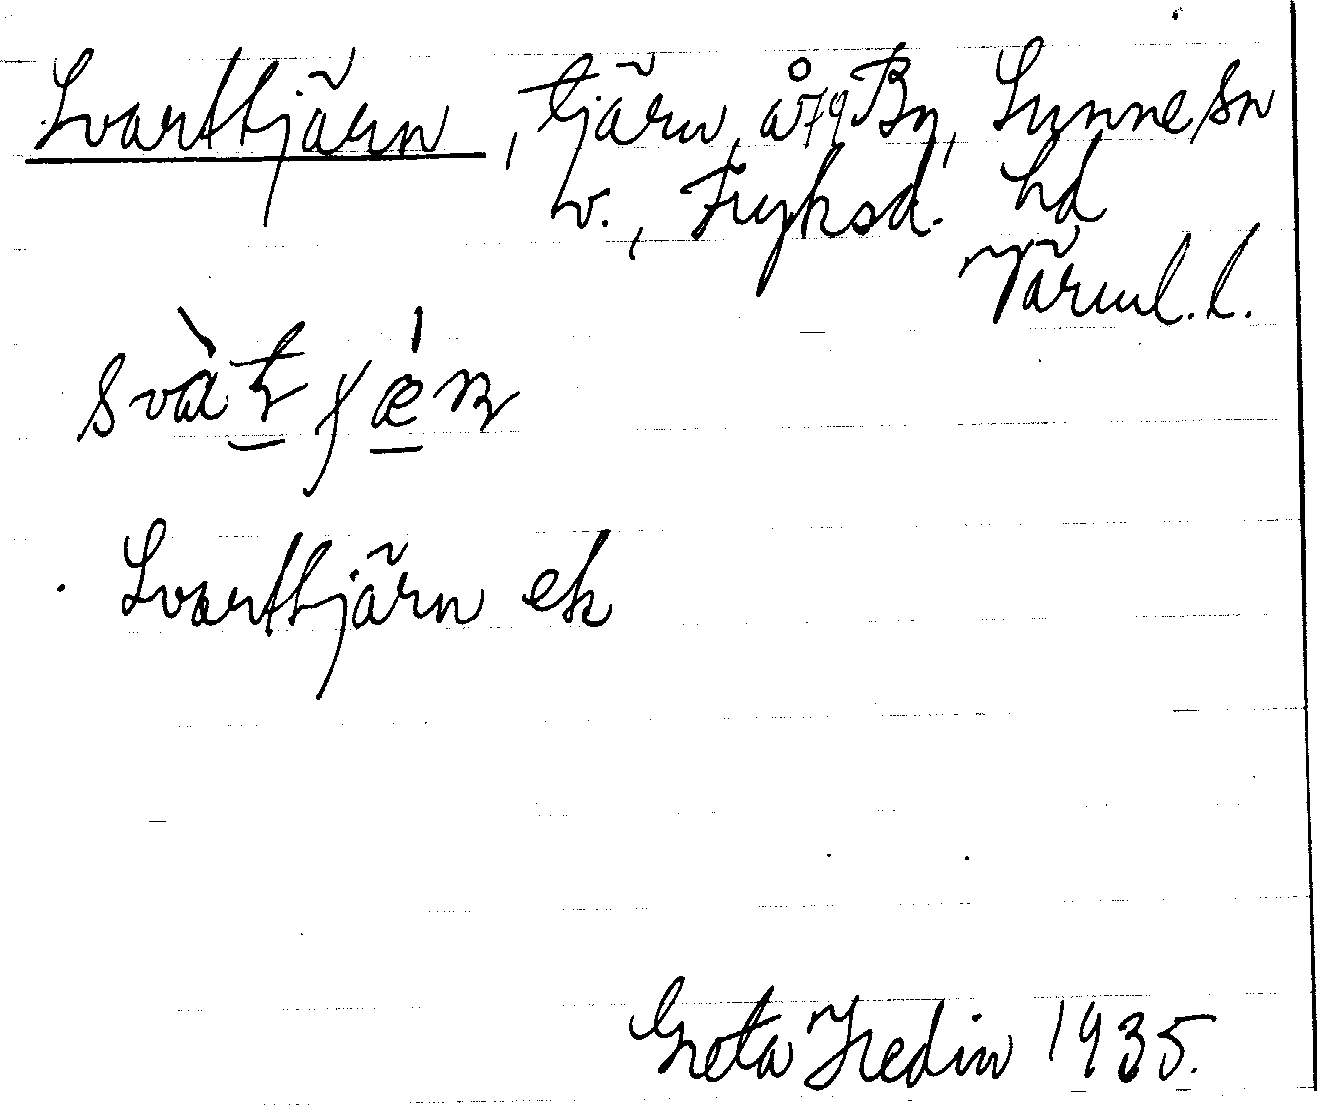 Svarttjärn, tjärn, å 579 By, Sunne sn
v., Fryksd. hd
Värml. l.
svàt̲ ɟǽn
Svarttjärn ek
Greta Hedin 1935.